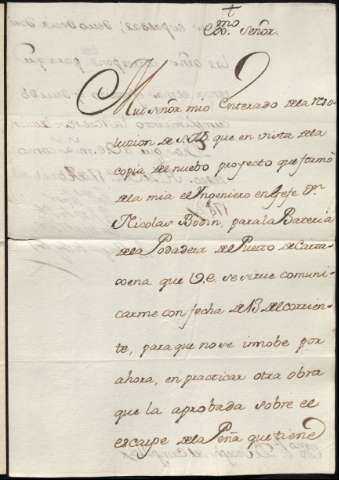 +
Exmo. Señor.
Mui Señor mio Enterado de la reso-
lucion de S. M. que en vista de la
copia de nuebo proyecto que formó
de la mia el Ingeniero en Jefe Dn.
Nicolas Bodin, para la Bateria
de la Podadera del Puerto de Carta-
gena que V. E. se sirve comuni-
carme con fecha de 13 del corrien-
te, para que no se innobe por
ahora, en practicar otra obra
que la aprobada sobre el
escarpe de la Peña que tiene